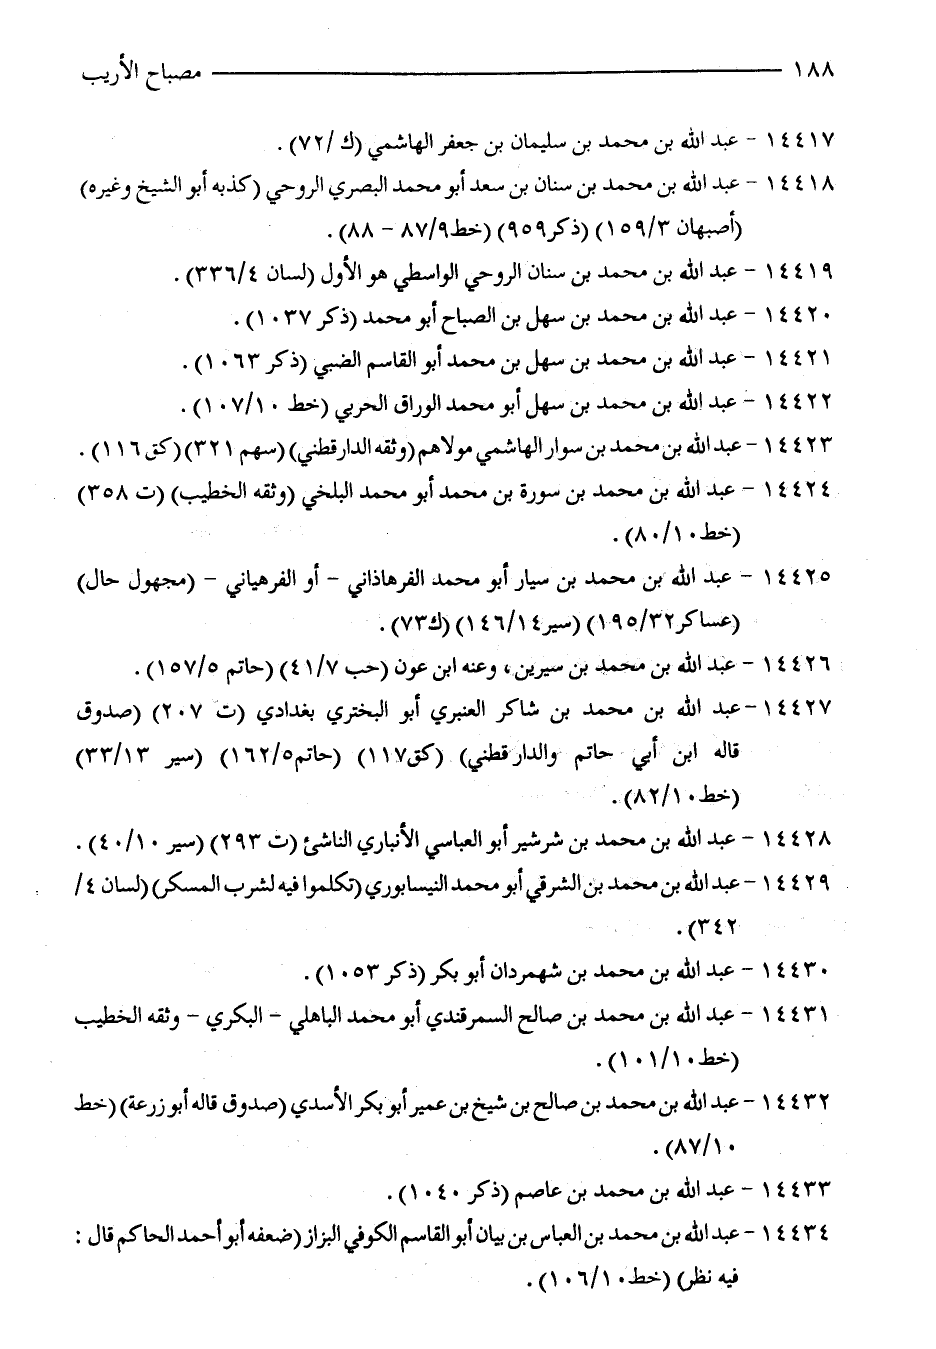 ١٨٨ ــــــــــ مصباح الأريب
١٤٤١٧ - عبد الله بن محمد بن سليمان بن جعفر الهاشمي (ك /٧٢) .
١٤٤١٨ - عبد الله بن محمد بن سنان بن سعد أبو محمد البصري الروحي (كذبه أبو الشيخ وغيره)
(أصبهان ١٥٩/٣) (ذكر٩٥٩) (خط٨٧/٩ - ٨٨) .
١٤٤١٩ - عبد الله بن محمد بن سنان الروحي الواسطي هو الأول (لسان ٣٣٦/٤) .
١٤٤٢٠ - عبد الله بن محمد بن سهل بن الصباح أبو محمد (ذكر ١٠٣٧) .
١٤٤٢١ - عبد الله بن محمد بن سهل بن محمد أبو القاسم الضبي (ذكر ١٠٦٣) .
١٤٤٢٢ - عبد الله بن محمد بن سهل أبو محمد الوراق الحربي (خط ١٠٧/١٠) .
١٤٤٢٣ - عبد الله بن محمد بن سوار الهاشمي مولاهم (وثقه الدارقطني) (سهم ٣٢١) (كق١١٦) .
١٤٤٢٤ - عبد الله بن محمد بن سورة بن محمد أبو محمد البلخي (وثقه الخطيب) (ت ٣٥٨)
(خط٨٠/١٠) .
١٤٤٢٥ - عبد الله بن محمد بن سيار أبو محمد الفرهاذاني - أو الفرهياني - (مجهول حال)
(عساكر١٩٥/٣٢) (سير١٤٦/١٤) (ك٧٣) .
١٤٤٢٦ - عبد الله بن محمد بن سيرين، وعنه ابن عون (حب ٤١/٧) (حاتم ١٥٧/٥) .
١٤٤٢٧ - عبد الله بن محمد بن شاكر العنبري أبو البختري بغدادي (ت ٢٠٧) (صدوق
قاله ابن أبي حاتم والدارقطني) (كق١١٧) (حاتم١٦٢/٥) (سير ٣٣/١٣)
(خط٨٢/١٠) .
١٤٤٢٨ - عبد الله بن محمد بن شرشير أبو العباسي الأنباري الناشئ (ت ٢٩٣) (سير ٤٠/١٠) .
١٤٤٢٩ - عبد الله بن محمد بن الشرقي أبو محمد النيسابوري (تكلموا فيه لشرب المسكر) (لسان ٤/
٣٤٢) .
١٤٤٣٠ - عبد الله بن محمد بن شهمردان أبو بكر (ذكر ١٠٥٣) .
١٤٤٣١ - عبد الله بن محمد بن صالح السمرقندي أبو محمد الباهلي - البكري - وثقه الخطيب
(خط١٠١/١٠) .
١٤٤٣٢ - عبد الله بن محمد بن صالح بن شيخ بن عمير أبو بكر الأسدي (صدوق قاله أبو زرعة) (خط
٨٧/١٠) .
١٤٤٣٣ - عبد الله بن محمد بن عاصم (ذكر ١٠٤٠) .
١٤٤٣٤ - عبد الله بن محمد بن العباس بن بيان أبو القاسم الكوفي البزاز (ضعفه أبو أحمد الحاكم قال :
فيه نظر) (خط١٠٦/١٠) .